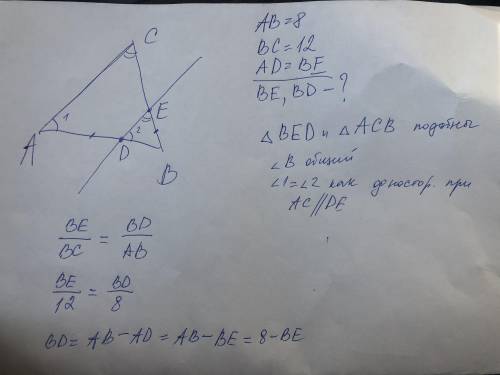 AB = 8
BC = 12
AD = BE
BE, BD - ?
△ BED и △ ACB подобны
∠B общий
∠1 = ∠2 как одностор. при
AC // DE
C
1
A
E
2
D
B
BE/BC = BD/AB
BE/12 = BD/8
BD = AB - AD = AB - BE = 8 - BE